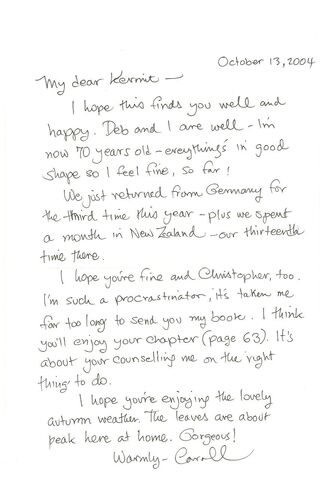 October 13, 2004
My dear Kermit —
I hope this finds you well and
happy. Deb and I are well - I'm
now 70 years old - everything's in good
shape so I feel fine, so far!
We just returned from Germany for
the third time this year - plus we spent
a month in New Zealand - our thirteenth
time there.
I hope you're fine and Christopher, too.
I'm such a procrastinator, it's taken me
far too long to send you my book. I think
you'll enjoy your chapter (page 63). It's
about your counselling me on the right
thing to do.
I hope you're enjoying the lovely
autumn weather. The leaves are about
peak here at home. Gorgeous!
Warmly - Carroll